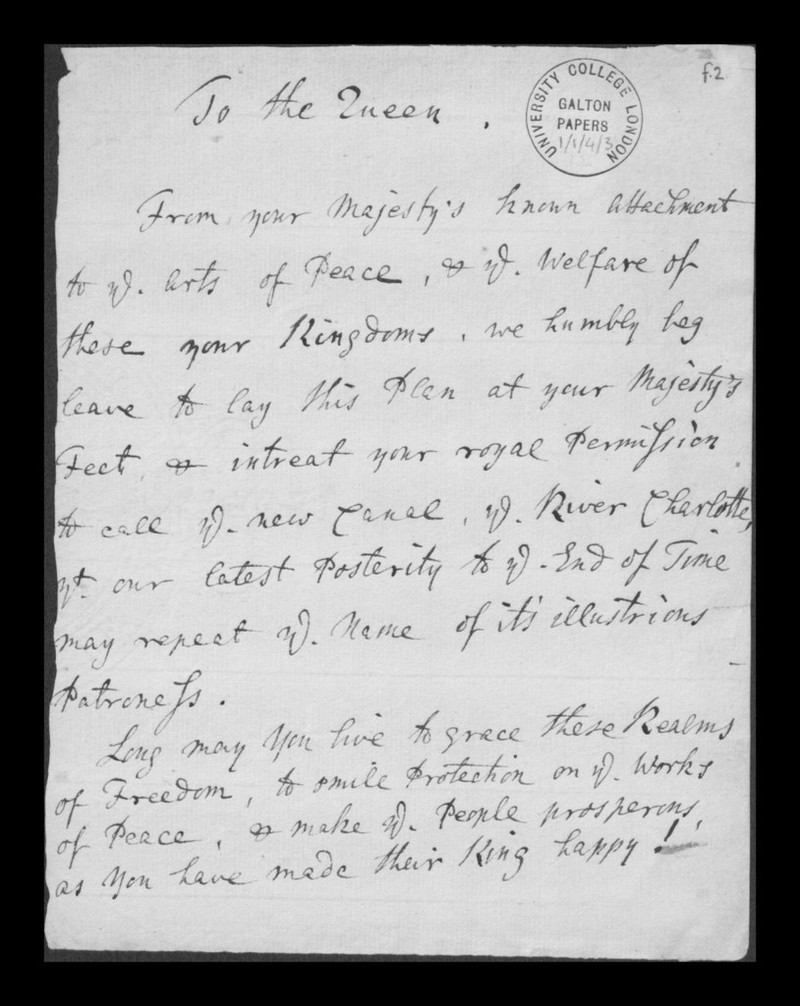 f.2
UNIVERSITY COLLEGE LONDON
GALTON
PAPERS
1/1/4/3
To the Queen.
From your Majesty's known attachment
to ye. Arts of Peace, & ye. Welfare of
these your Kingdoms, we humbly beg
leave to lay this Plan at your Majesty's
Feet, & intreat your royal Permission
to call ye. new Canal, ye. River Charlotte,
yt. our latest Posterity to ye. End of Time
may repeat ye. Name of it's illustrious
Patroness.
Long may You live to grace these Realms
of Freedom, to smile Protection on ye. Works
of Peace, & make ye. People prosperous,
as You have made their King happy!